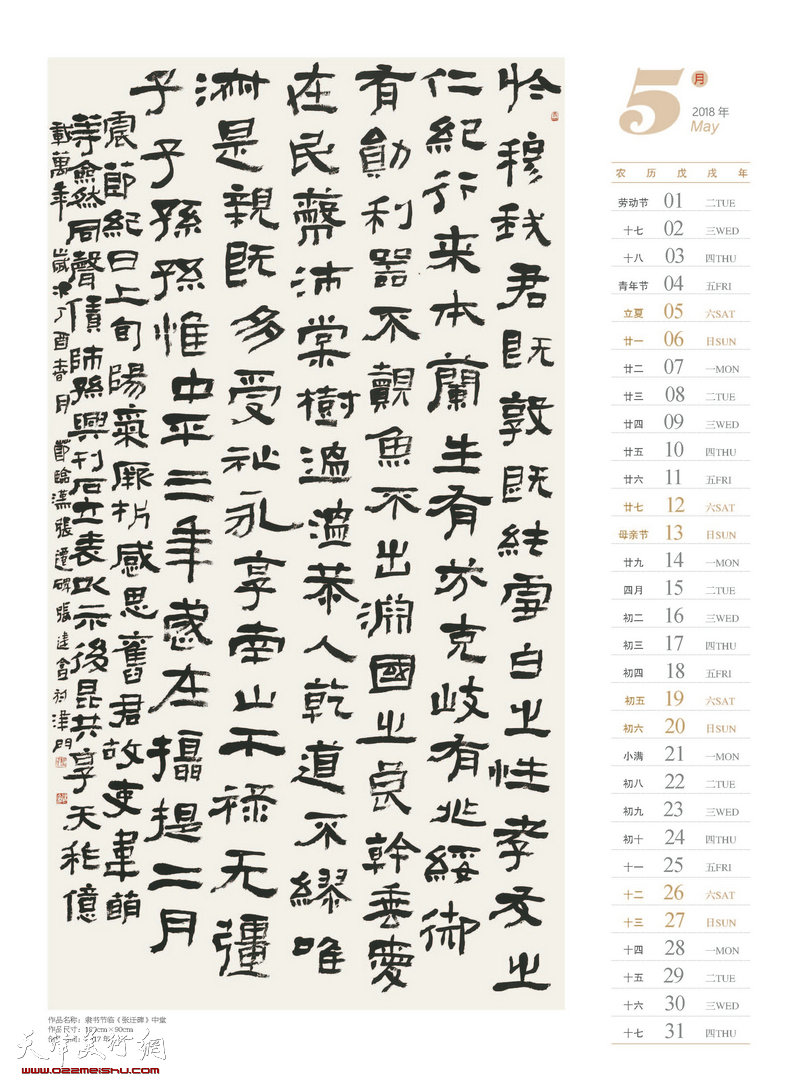 於穆我君既敦既純雪白之性孝友之
仁紀行来本蘭生有芬克岐有兆綏御
有勛利器不覿魚不出淵國之良幹垂愛
在民蔽沛棠樹溫溫恭人乾道不繆唯
淑是親既多受祉永享南山干禄无疆
子子孫孫惟中平三年歲在攝提二月
震節紀日上旬陽氣厥析感思舊君故吏韋萌
等僉然同聲債師孫興刊石立表以示後昆共享天祚億
載萬年 歲次丁酉春月節臨漢張遷碑張建會於津門
5月
2018 年
May
农 历 戊 戌 年
劳动节 01 二TUE
十七 02 三WED
十八 03 四THU
青年节 04 五FRI
立夏 05 六SAT
廿一 06 日SUN
廿二 07 一MON
廿三 08 二TUE
廿四 09 三WED
廿五 10 四THU
廿六 11 五FRI
廿七 12 六SAT
母亲节 13 日SUN
廿九 14 一MON
四月 15 二TUE
初二 16 三WED
初三 17 四THU
初四 18 五FRI
初五 19 六SAT
初六 20 日SUN
小满 21 一MON
初八 22 二TUE
初九 23 三WED
初十 24 四THU
十一 25 五FRI
十二 26 六SAT
十三 27 日SUN
十四 28 一MON
十五 29 二TUE
十六 30 三WED
十七 31 四THU
作品名称：隶书节临《张迁碑》中堂
作品尺寸：180cm×90cm
天津美術網
www.022meishu.com